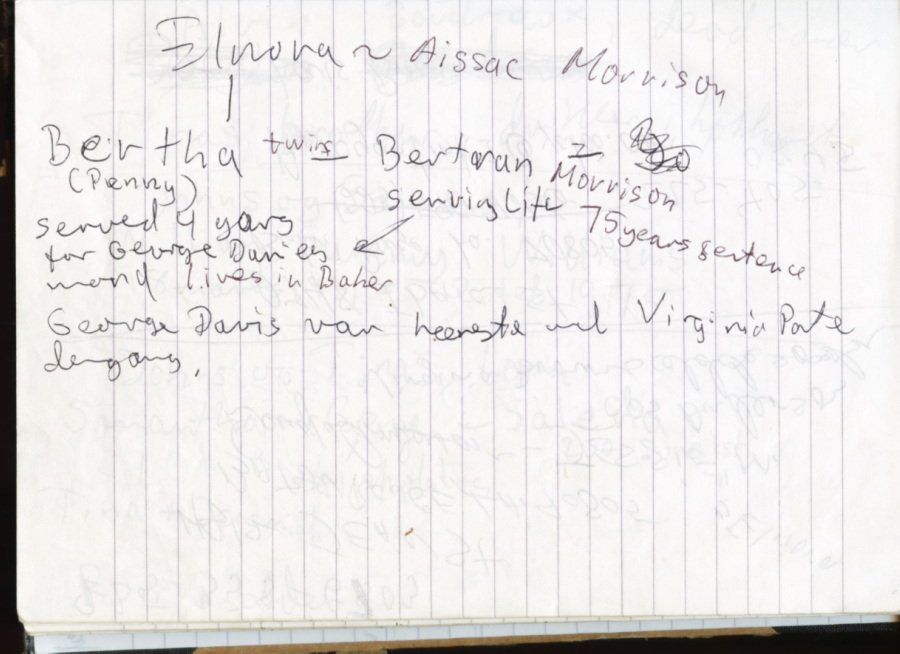 Elnora ~ Aissac Morrison
Bertha twins Bertoran =
(Penny) Morrison
served 4 years serving life 75 years sentence
for George Davies
lives in Baker
George Davis var Virginia Pate
dengang.